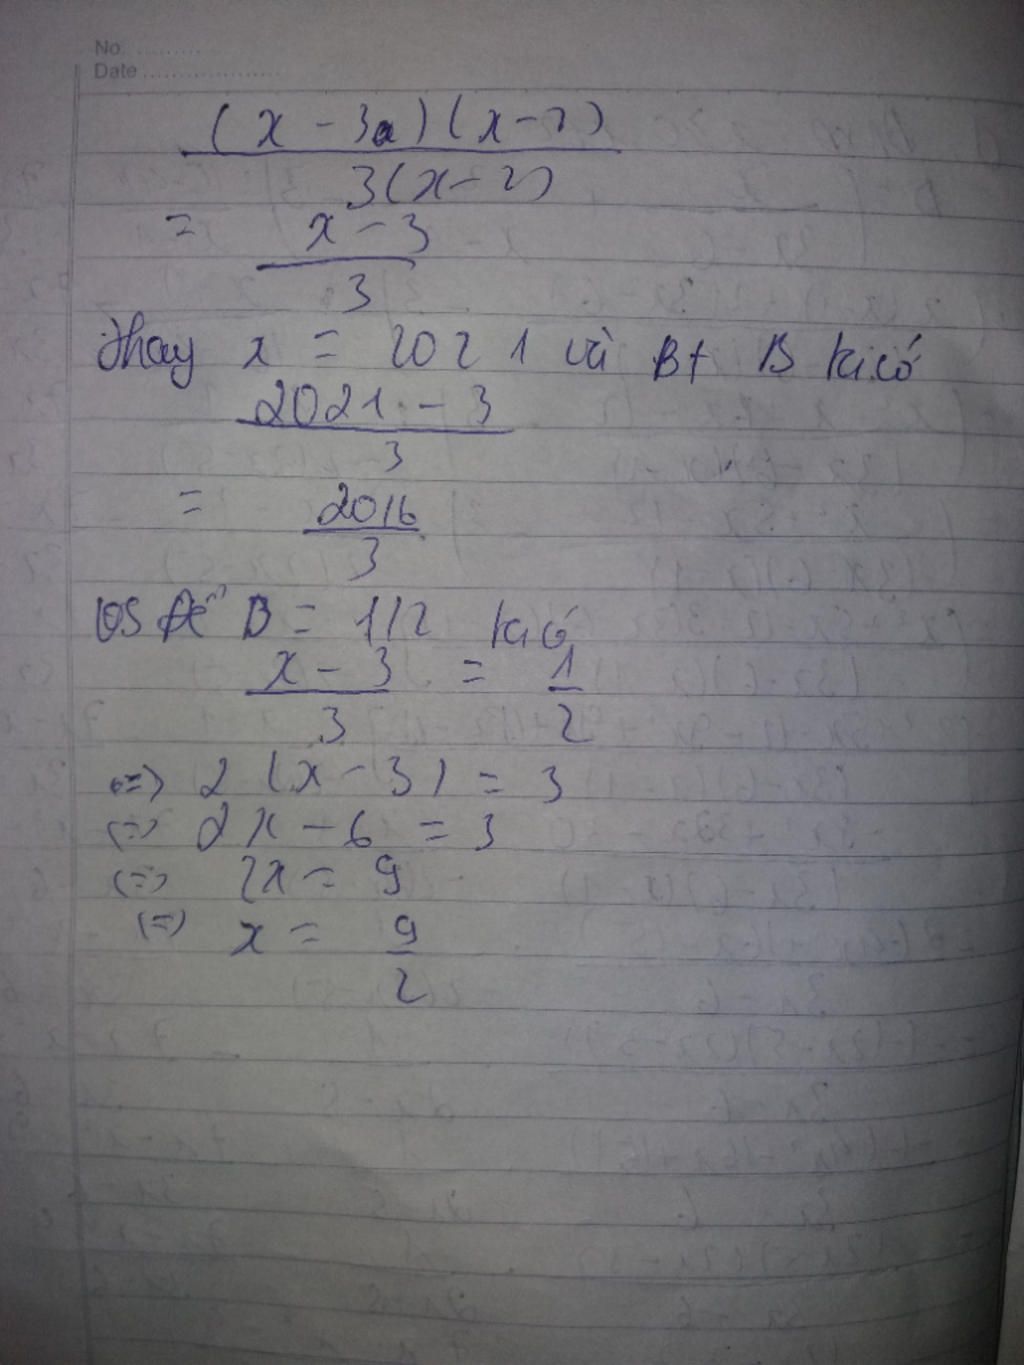 No.
Date
(x - 3)(x - 2)
3(x - 2)
= x - 3
3
Thay x = 2021 và Bt B ta có
2021 - 3
3
= 2016
3
Để B = 1/2 ta có
x - 3 = 1
3 2
<=> 2(x - 3) = 3
<=> 2x - 6 = 3
<=> 2x = 9
<=> x = 9
2